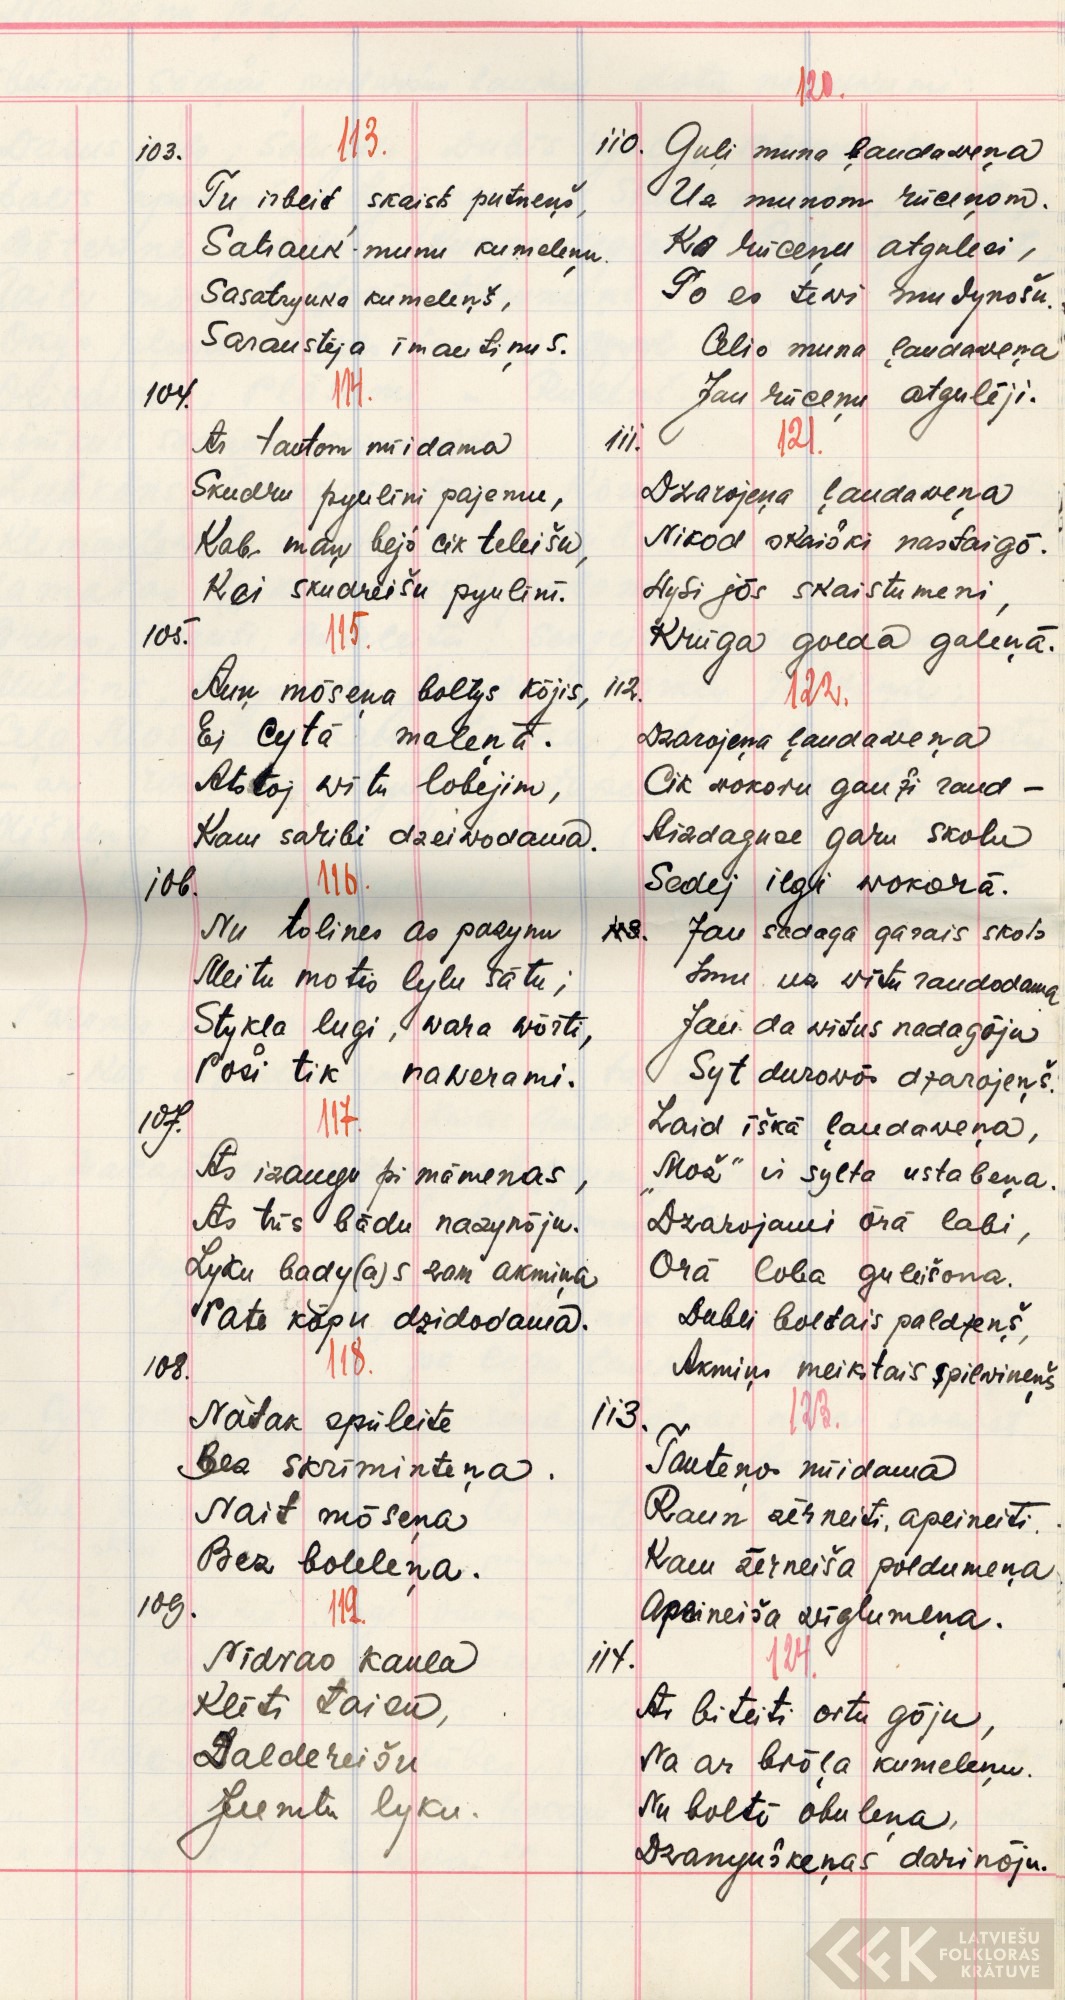 103. 113.
Tu irbeit, skaist putneņš,
Satrauk munu kumeleņu.
Sasatryuka kumeleņš,
Saraustēja īmautiņus.
104. 114.
As tautom nūidama
Skudru pyulini pajemu,
Kab maņ bejō cik teleišu,
Kai skudreišu pyulinī.
105. 115.
Auņ mōseņa boltys kōjis,
Ej cytā maleņā.
Atstoj wītu lobejim,
Kam saribi dzeiwodama.
106. 116.
Nu tolines as pazynu
Meitu motis lylu sātu;
Stykla lugi, wara wōrti,
Poši tik nawerami.
107. 117.
As izaugu pi māmenas,
As tūs bādu nazynōju.
Lyku bady(a)s zam akmiņa
Pate kōpu dzidodama.
108. 118.
Natak spūleite
Bez skrīminteņa.
Nait mōseņa
Bez boleleņa.
109. 119.
Nīdras kaula
Klēti taisu,
Daldereišu
Jumtu lyku.
120.
110. Guļi muna ļaudaweņa
Uz munom rūceņom.
Ka rūceņu atgulesi,
To es tewi mudynošu.
Celis muna ļaudaweņa
Jau rūceņu atgulēji.
111. 121.
Dzarojeņa ļaudaweņa
Nikod skaiški nastaigō.
Wysi jōs skaistumeni,
Krūga golda galeņā.
112. 122.
Dzarojeņa ļaudaweņa
Cik wokoru gauži raud –
Aizdaguse garu skolu
Sedej ilgi wokorā.
Jau sadaga garais skols
Imu uz wītu raudodama
Jau da wītus nadagōju
Syt durowōs dzarojeņš.
Laid īškā ļaudaweņa,
„Mož" ir sylta ustabeņa.
Dzarojami ōrā labi,
Orā loba guleišona.
Dubli boltais paldzeņš,
Akmiņs meikstais spilwineņš
113. 123.
Tauteņos nūidama
Raun zērneiti, apeineiti.
Kam zērneiša poldumeņa
Apeineiša wīglumeņa.
114. 124.
As biteiti ortu gōju,
Na ar brōļa kumeleņu.
Nu boltō obuleņa,
Dzanyuškeņas darinōju.
LATVIEŠU
FOLKLORAS
KRĀTUVE